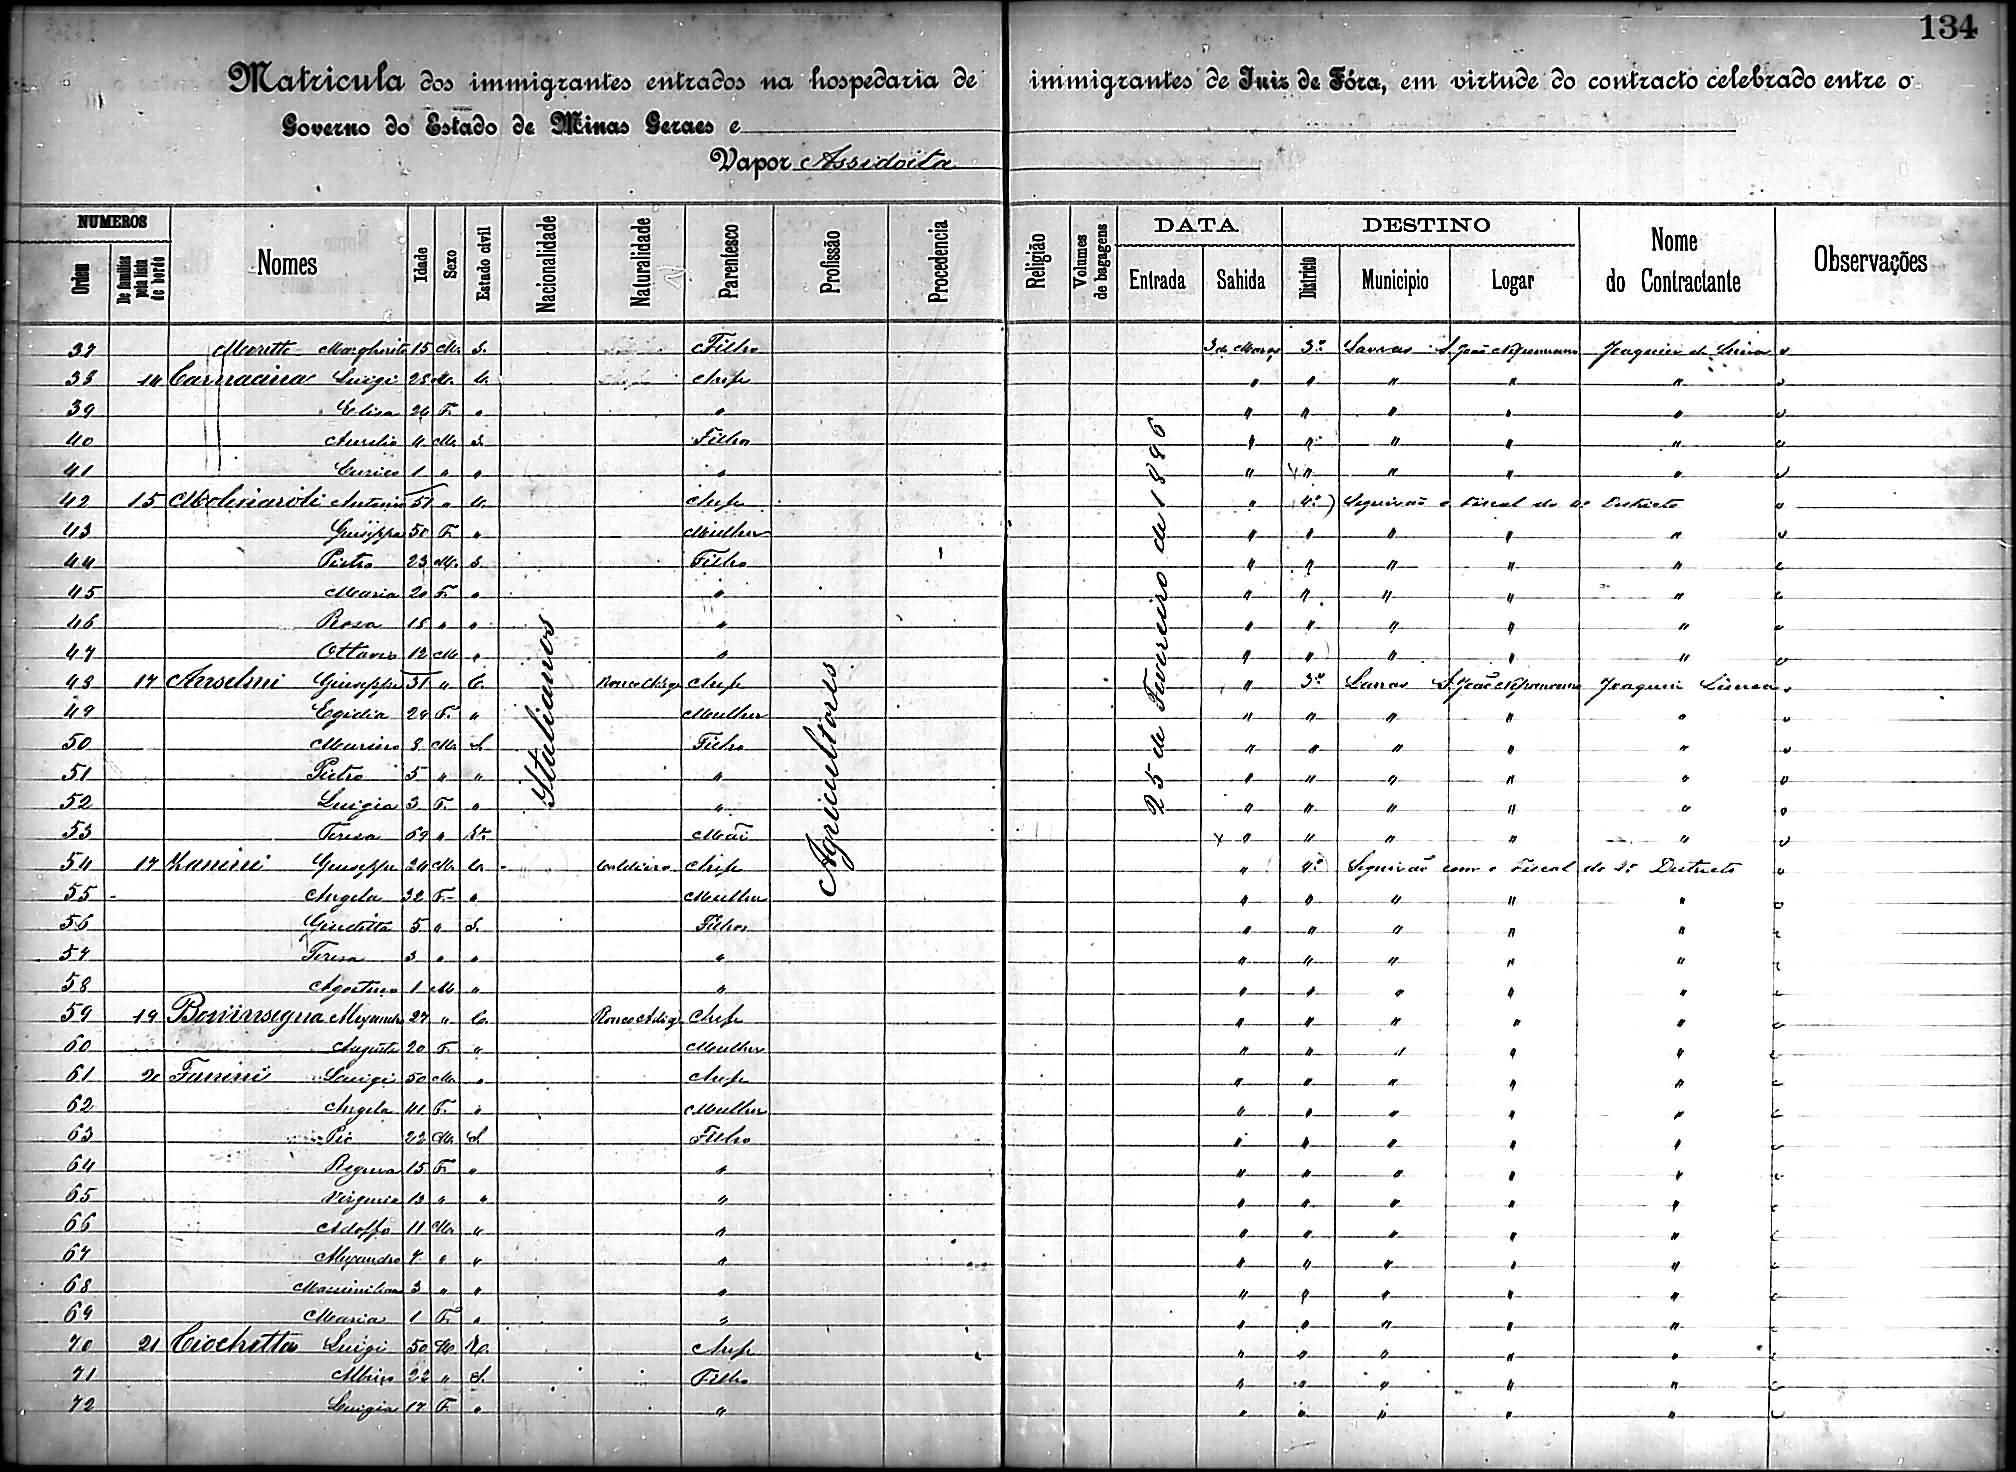 134
Matricula dos immigrantes entrados na hospedaria de immigrantes de Juiz de Fóra, em virtude do contracto celebrado entre o
Governo do Estado de Minas Geraes e
Vapor Assidoita
NUMEROS DATA DESTINO
Ordem De familias pela lista de bordo Nomes Idade Sexo Estado civil Nacionalidade Naturalidade Parentesco Profissão Procedencia Religião Volumes de bagagens Entrada Sahida Districto Municipio Logar Nome do Contractante Observações
Italianos
Agricultores
25 de Fevereiro de 1896
37 Moretti Margherita 15 M. S. Filho 3 de Março 3º Lavras S. João Nepomuceno Joaquim de Lima "
38 14 Carnacina Luigi 28 M. C. Chefe " " " " "
39 Elisa 24 F. " " " " " " "
40 Aurelio 4 M. S. Filhos " " " " "
41 Enrico 1 " " " " " " " "
42 15 Molinaroli Antonio 51 " C. Chefe " 4º Seguirão o Fiscal do 4º Districto
43 Giuseppa 50 F. " Mulher " " " " "
44 Pietro 23 M. S. Filho " " " " "
45 Maria 20 F. " " " " " " "
46 Rosa 15 " " " " " " " "
47 Ottavio 12 M " " " " " " "
48 17 Anselmi Giuseppe 31 " C. Ronco Adige Chefe " 3º Lavras S. João Nepomuceno Joaquim Lima
49 Egidia 29 F. " Mulher " " " " "
50 Marino 8 M. S Filho " " " " "
51 Pietro 5 " " " " " " " "
52 Luigia 3 F. " " " " " " "
53 Teresa 69 " V. Mãi " " " " "
54 17 Zanini Giuseppe 34 M. C. Caldiero Chefe " 4º Seguirão com o Fiscal do 4º Districto
55 Angela 32 F. " Mulher " " " " "
56 Giuditta 5 " S. Filhos " " " " "
57 Teresa 3 " " " " " " " "
58 Agostino 1 M " " " " " " "
59 19 Boninsegna Alexandre 27 " C. Ronco Adige Chefe " " " " "
60 Augusta 20 F. " Mulher " " " " "
61 20 Fanini Luigi 50 M. " Chefe " " " " "
62 Angela 41 F. " Mulher " " " " "
63 Pio 22 M. S Filho " " " " "
64 Regina 15 F. " " " " " " "
65 Virginia 13 " " " " " " " "
66 Adolfo 11 M. " " " " " " "
67 Alexandro 7 " " " " " " " "
68 Massimiliano 3 " " " " " " " "
69 Maria 1 F. " " " " " " "
70 21 Ciochetta Luigi 50 M V. Chefe " " " " "
71 22 " S. Filho " " " " "
72 Luigia 17 F. " " " " " " "